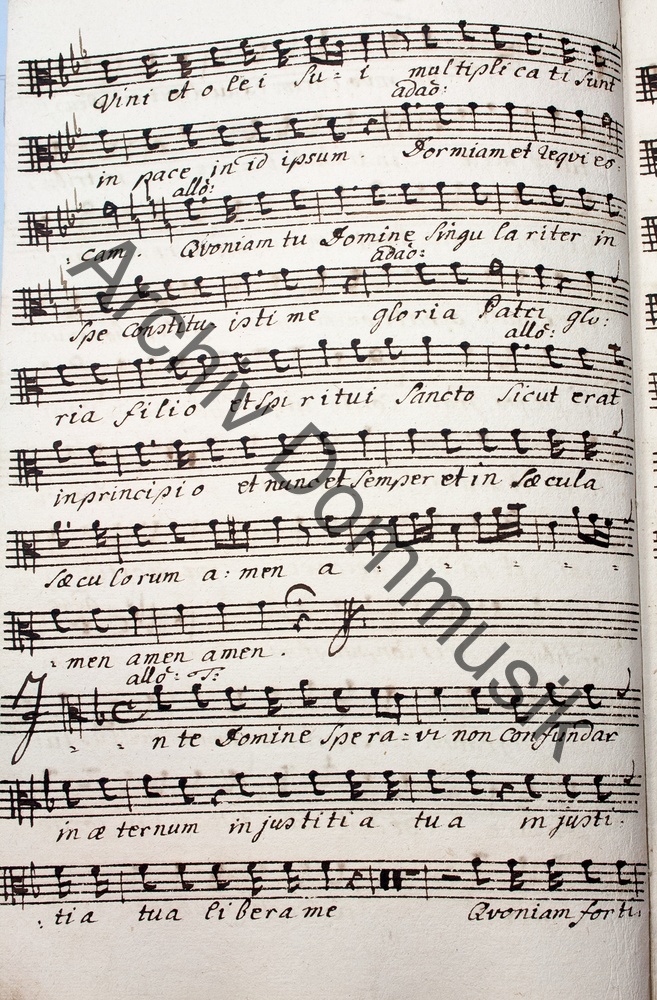 Vini et o le i su = i multipli ca ti sunt
adaō:
in pace in id ipsum. Dormiam et requi es:
allō:
: cam. Qvoniam tu Domine singu la riter in
adaō:
spe constitu isti me gloria Patri glo:
allō:
ria filio et spi ritui Sancto sicut erat
in principio et nunc et semper et in sæcula
sæcu lorum a: men a
= men amen amen.
allō:
In te Domine spera = vi non confundar
in æ ternum in justiti a tu a in justi:
: ti a tua libera me Qvoniam forti:
Archiv Dommusik